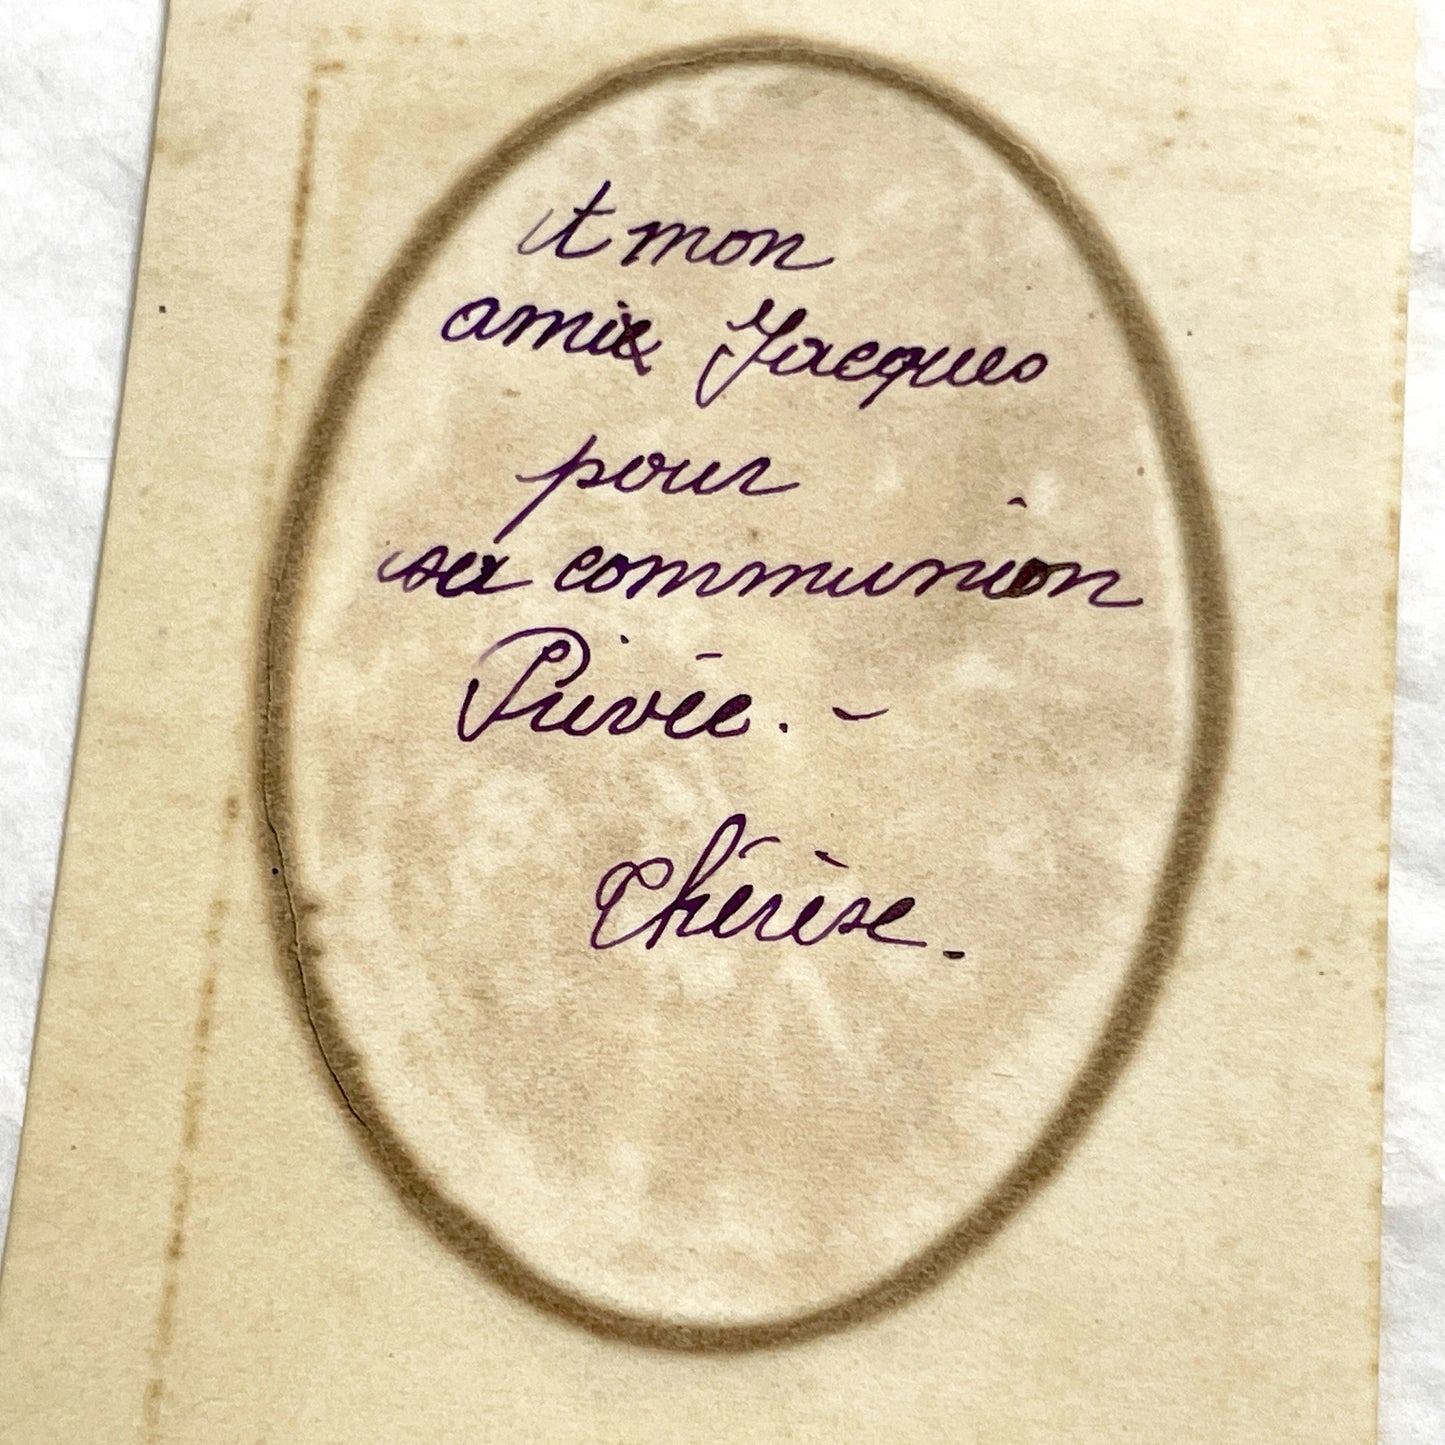 A mon
ami Jacques
pour
sa communion
Privée. -
Thérèse.